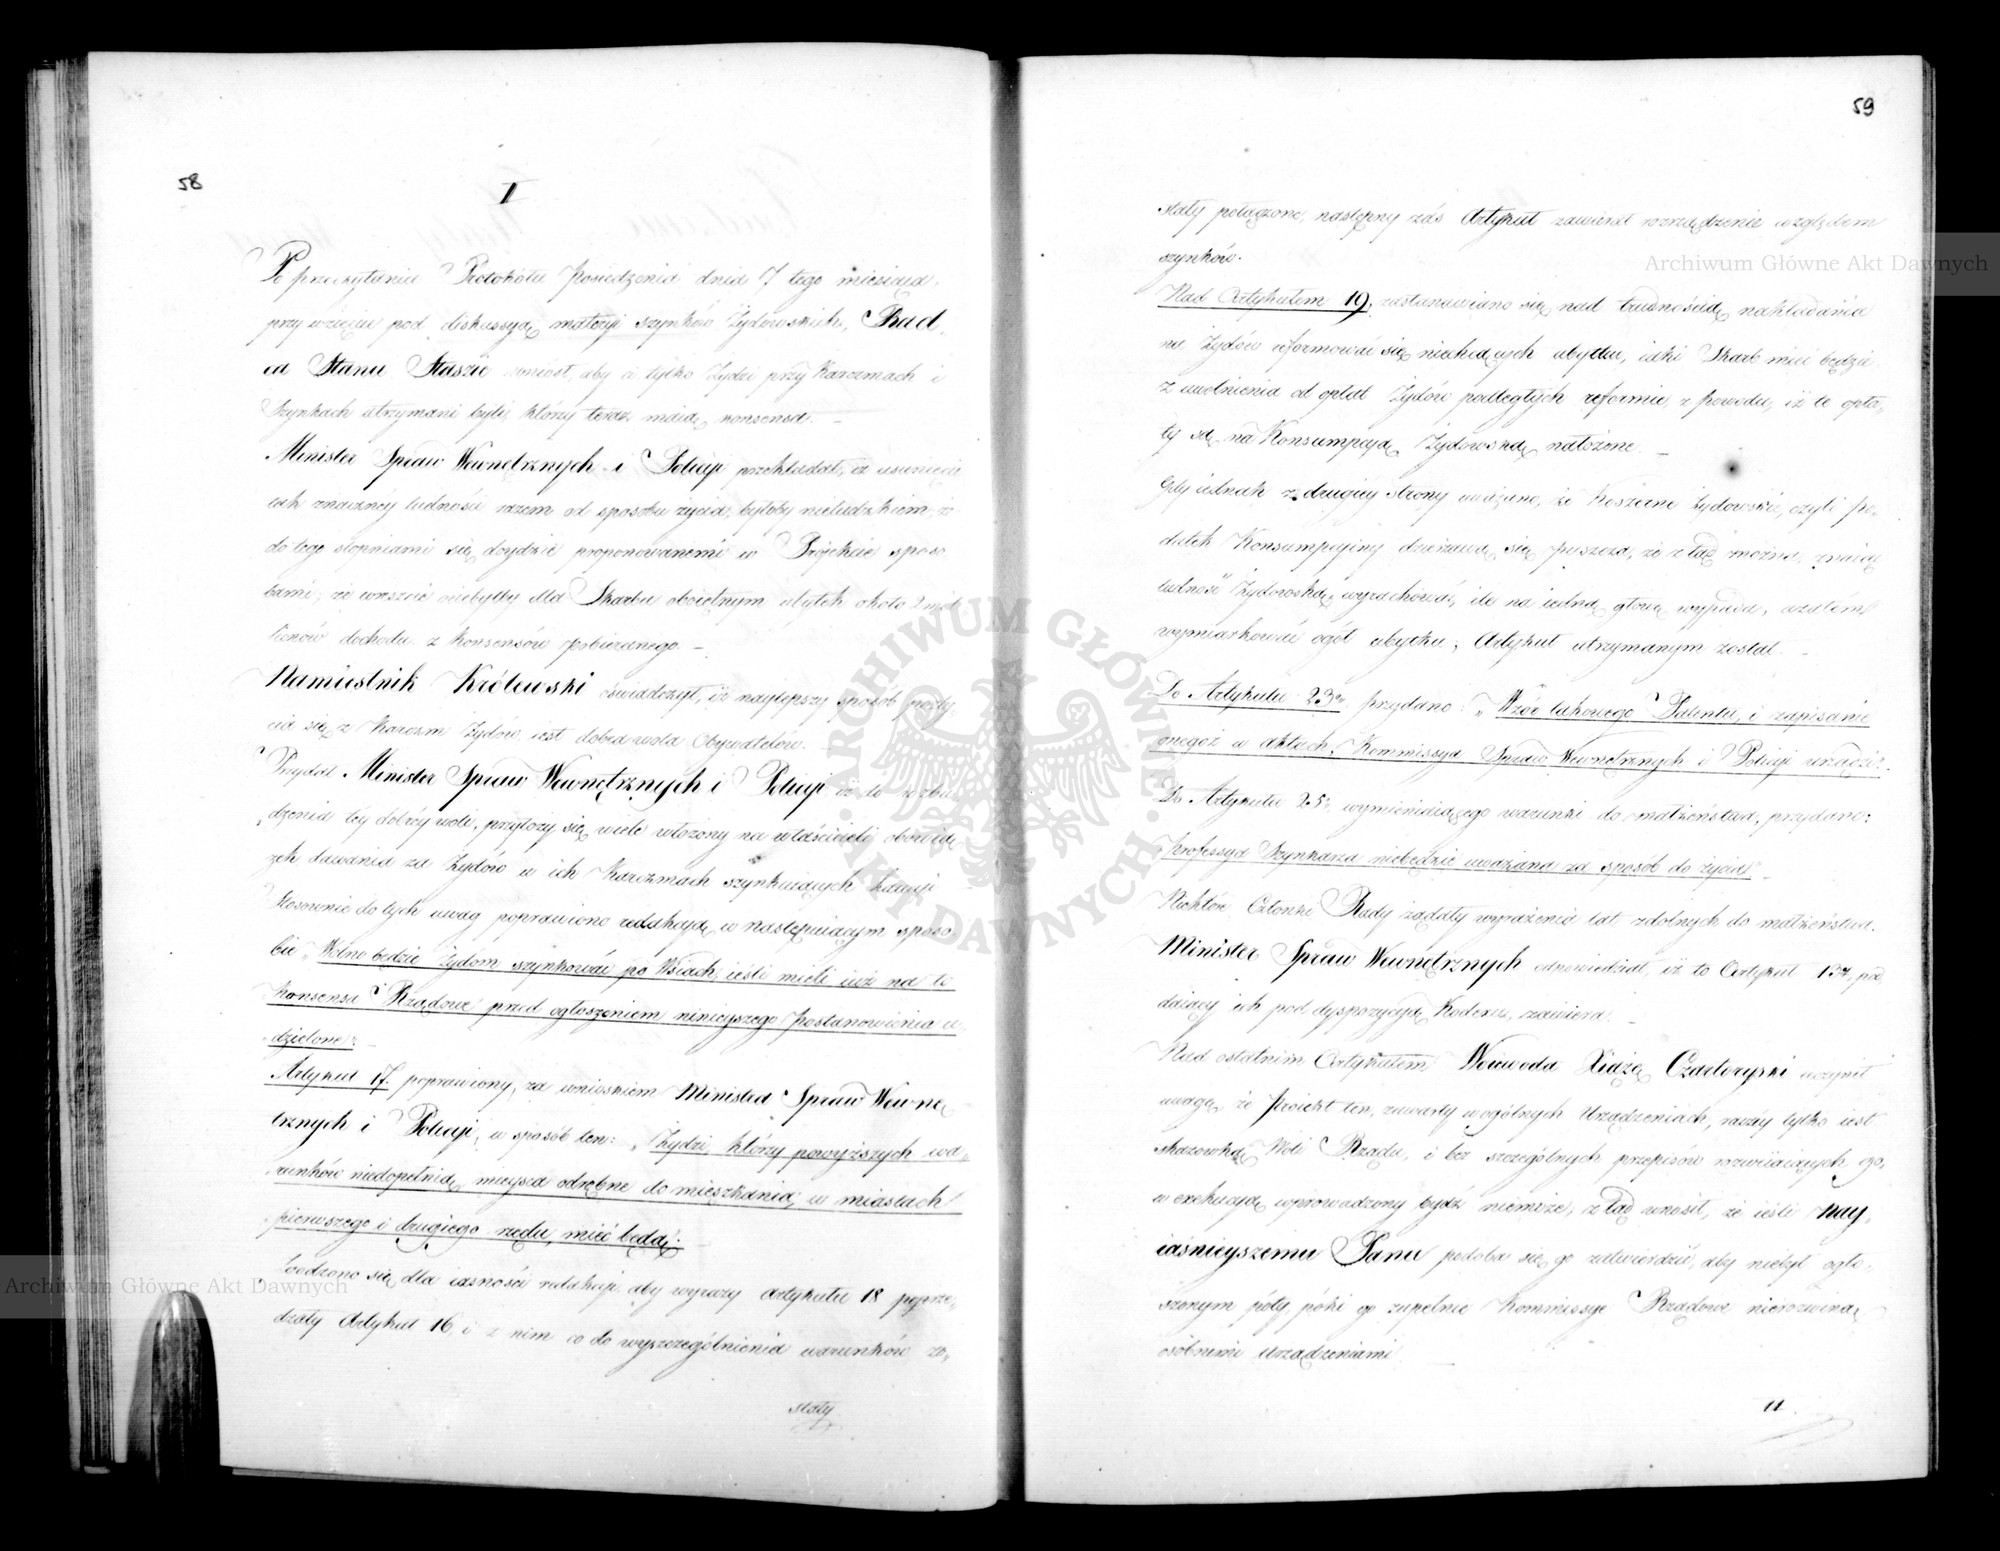 58
I
Po przeczytaniu Protokółu Posiedzenia dnia 7 tego miesiąca,
przy wzięciu pod diskussyą materyi szynków Żydowskich, Rad„
ca Stanu Staszic wniósł, aby ci tylko Żydzi przy Karczmach i
Szynkach utrzymani byli, którzy teraz maią konsensa. —
Minister Spraw Wewnętrznych i Policyi przekładał, iż usunięcie
tak znacznéy ludności razem od sposobu życia, byłoby nieludzkiem; iż
do tego stopniami się doydzie proponowanemi w Projekcie sposo
bami; że wreszcie niebyłby dla Skarbu oboiętnym ubytek około 2 mil
lionów dochodu z konsensów pobieranego. —
Namiestnik Królewski oświadczył, iż naylepszy sposób pozby
cia się z Karczm Żydów, iest dobra wola Obywatelów. —
Przydał Minister Spraw Wewnętrznych i Policyi iż do wzbu
dzenia tey dobréy woli, przyłoży się wiele włożony na właścicieli obowią
zek dawania za Żydów w ich Karczmach szynkuiących kaucyi
Stosownie do tych uwag poprawiono redakcyą w następuiącym sposo
bie „Wolno będzie Żydom szynkować po Wsiach, ieśli mieli iuż na to
Konsensa Rządowe przed ogłoszeniem ninieyszego Postanowienia u„
dzielone." —
Artykuł 17. poprawiony, za wnioskiem Ministra Spraw Wewnę
trznych i Policyi, w sposób ten: „Żydzi, którzy powyższych wa„
runków niedopełnią, mieysca odrębne do mieszkania, w miastach
pierwszego i drugiego rzędu, mieć będą." —
Zgodzono się, dla iasności redakcyi, aby wyrazy Artykułu 18 poprze„
dzały Artykuł 16, i z nim co do wyszczególnienia warunków zo„
stały
59
stały połączone, następny zaś Artykuł zawierał rozrządzenie względem
szynków.
Nad Artykułem 19, zastanawiano się nad trudnością nakładania
na Żydów reformować się niechcących ubytku, iaki Skarb mieć będzie
z uwolnienia od opłat Żydów podległych reformie, z powodu, iż te opła„
ty są na Konsumpcyą Żydowską nałożone. —
Gdy iednak z drugiey strony uważano, że Koszerne Żydowskie, czyli po„
datek Konsumpcyiny dzierżawą się puszcza, że ztąd można, znaiąc
ludność Żydowską, wyrachować, ile na iedną głowę wypada, azatem
wymiarkować ogół ubytku; Artykuł utrzymanym został. —
Do Artykułu 23go przydano: „Wzór takowego Patentu, i zapisanie
onegoż w aktach, Kommissya Spraw Wewnętrznych i Policyi urządzi". —
Do Artykułu 25, wymieniaiącego warunki do małżeństwa, przydano:
„Professya Szynkarza niebędzie uważana za sposób do życia" —
Niektóre Członki Rady żądały wyrażenia lat zdolnych do małżeństwa.
Minister Spraw Wewnętrznych odpowiedział, iż to Artykuł 134, pod
daiący ich pod dyspozycyą Kodexu, zawiera. —
Nad ostatnim Artykułem Woiewoda Xiążę Czartoryski uczynił
uwagę, że Proiekt ten, zawarty w ogólnych Urządzeniach, raczéy tylko iest
skazówką Woli Rządu, i bez szczególnych przepisów rozwiiaiących go,
w exekucyą wprowadzony bydź niemoże; ztąd wnosił, że ieśli Nay„
iaśnieyszemu Panu podoba się go zatwierdzić, aby niebył ogło„
szonym póty, póki go zupełnie Kommissye Rządowe nierozwiną
osóbnemi urządzeniami. —
II
ARCHIWUM GŁÓWNE AKT DAWNYCH
Archiwum Główne Akt Dawnych
Archiwum Główne Akt Dawnych